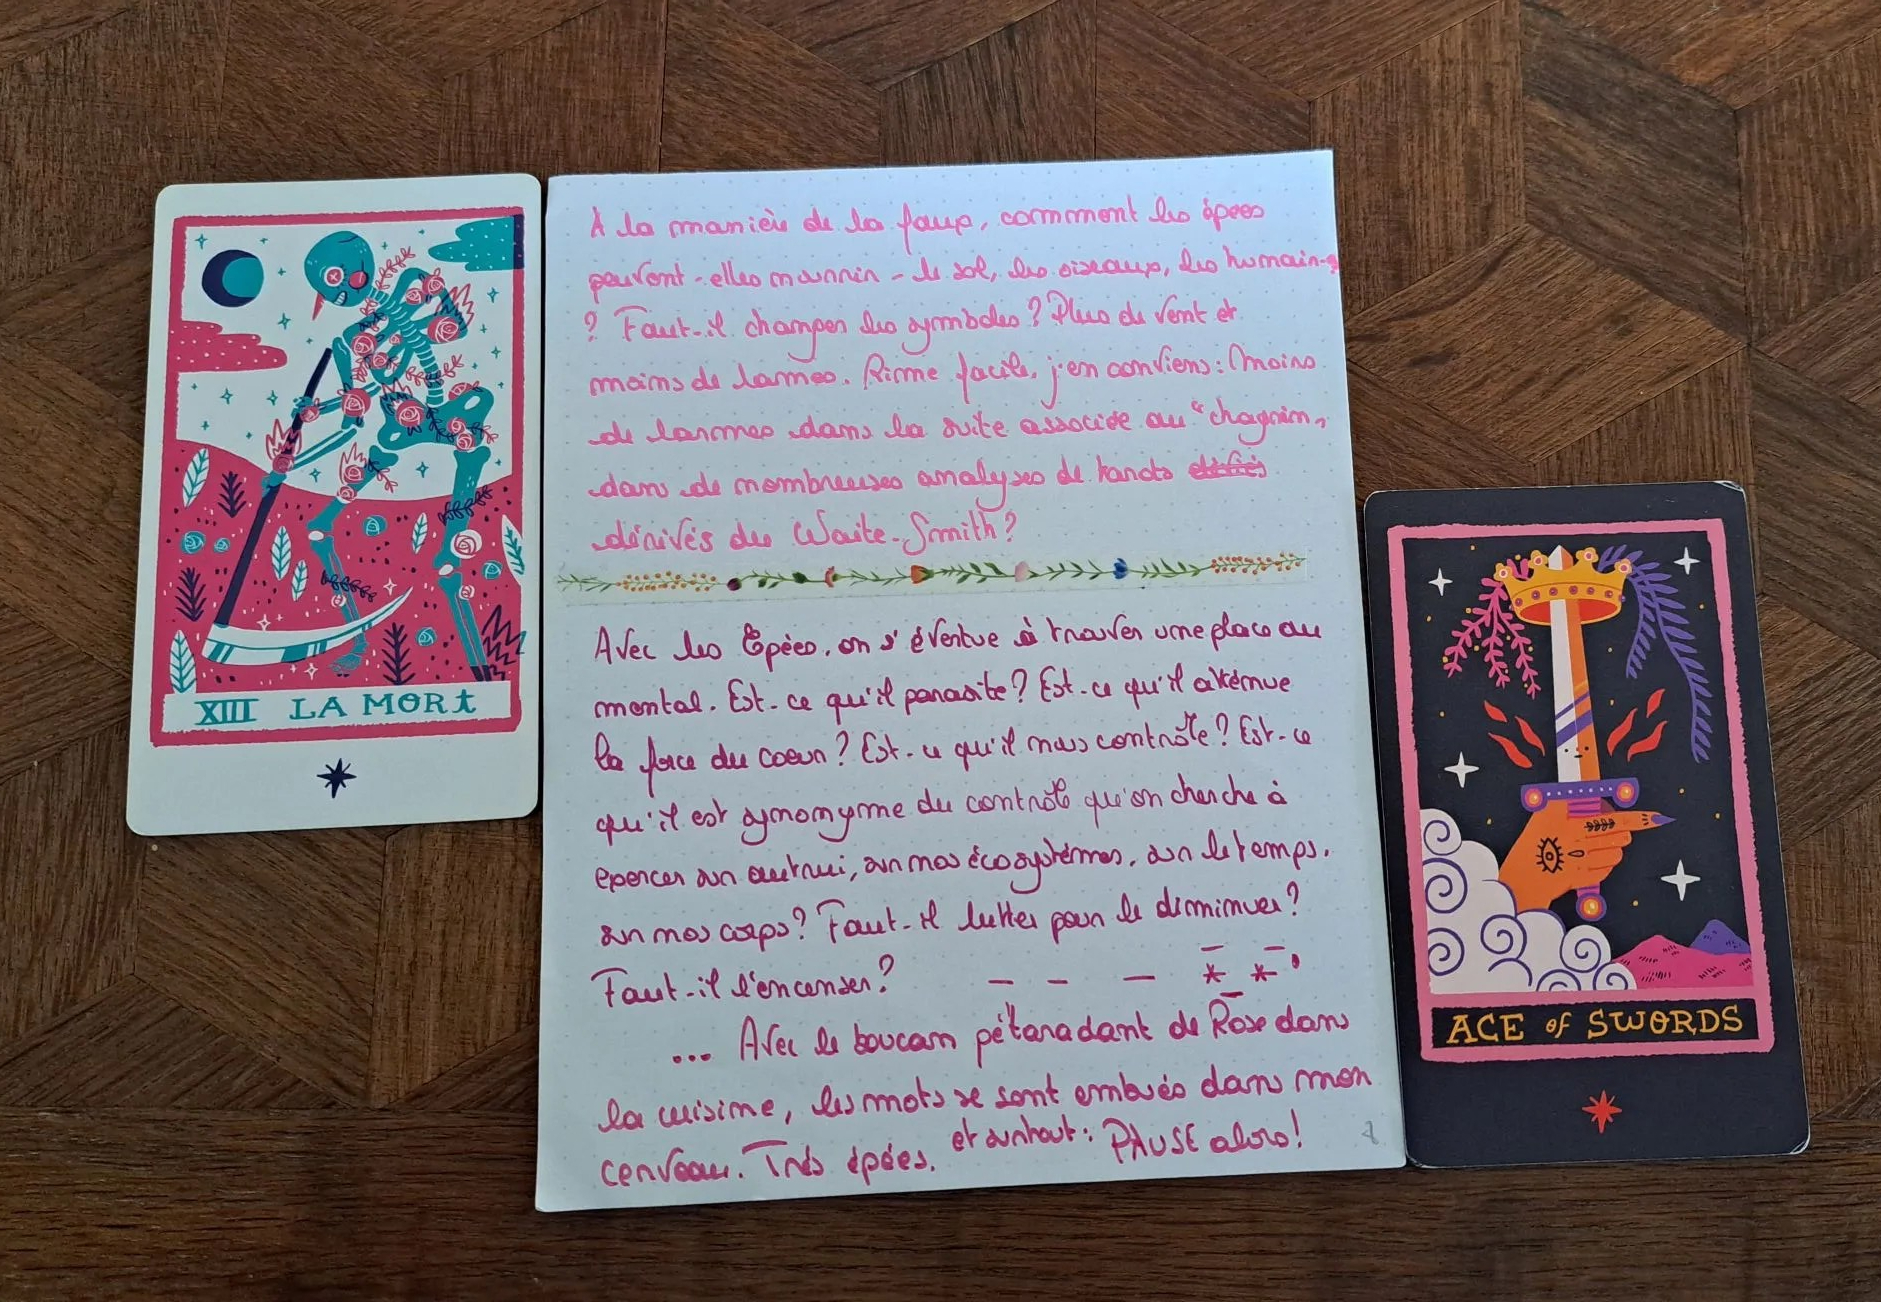 XIII LA MORT
À la manière de la faux, comment les épées
peuvent-elles nourrir - le sol, les oiseaux, les humain-s
? Faut-il changer les symboles ? Plus de vent et
moins de larmes. Rime facile, j'en conviens : Moins
de larmes dans la suite associée au "chagrin"
dans de nombreuses analyses de tarots
dérivés du Waite-Smith ?
Avec les Épées, on s'évertue à trouver une place au
mental. Est-ce qu'il parasite ? Est-ce qu'il atténue
la force du coeur ? Est-ce qu'il nous contrôle ? Est-ce
qu'il est synonyme du contrôle qu'on cherche à
exercer sur autrui, sur nos écosystèmes, sur le temps,
sur nos corps ? Faut-il lutter pour le diminuer ?
Faut-il l'encenser ? _ _ _ * *
... Avec le boucan pétaradant de Rose dans
la cuisine, les mots se sont embués dans mon
cerveau. Très épées, et surtout : PAUSE alors !
ACE of SWORDS